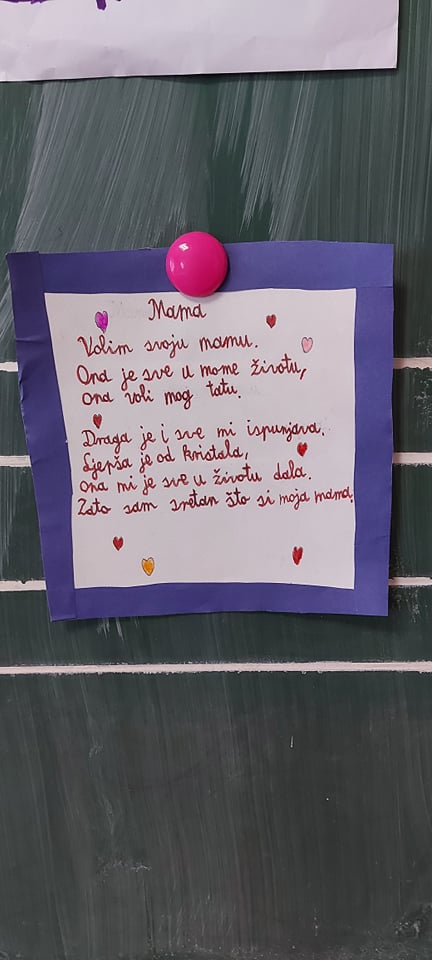 Mama
Volim svoju mamu.
Ona je sve u mome životu,
ona voli mog tatu.
Draga je i sve mi ispunjava.
Ljepša je od kristala,
ona mi je sve u životu dala.
Zato sam sretan što si moja mama.